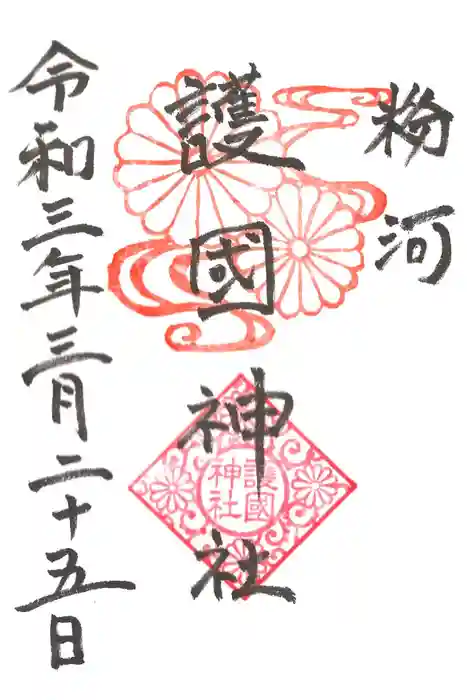 粉河
護國神社
護國
神社
令和三年三月二十五日